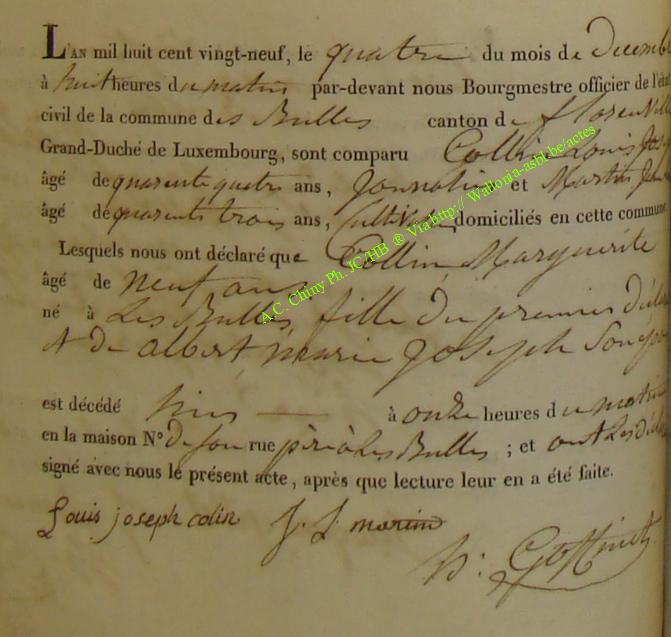 L'AN mil huit cent vingt-neuf, le quatre du mois de decemb
à huit heures du matin par-devant nous Bourgmestre officier de l'état
civil de la commune des Bulles canton de florenville
Grand-Duché de Luxembourg, sont comparu Collin Louis Jos
âgé de quarente quatre ans, Journalier et Martin
âgé de quarente trois ans, Cultivateur domiciliés en cette commune
Lesquels nous ont déclaré que Collin, Marguerite
âgé de neuf ans
né à Les Bulles, fille du premier
et de albert, marie Joseph
est décédé hier — à onze heures du matin
en la maison N° de son rue père à Les Bulles ; et ont Les
signé avec nous le présent acte, après que lecture leur en a été faite.
Louis joseph colin J. J. martin
A.C. Chiny Ph. JC/HB ® Via http:// Wallonia-asbl.be/actes